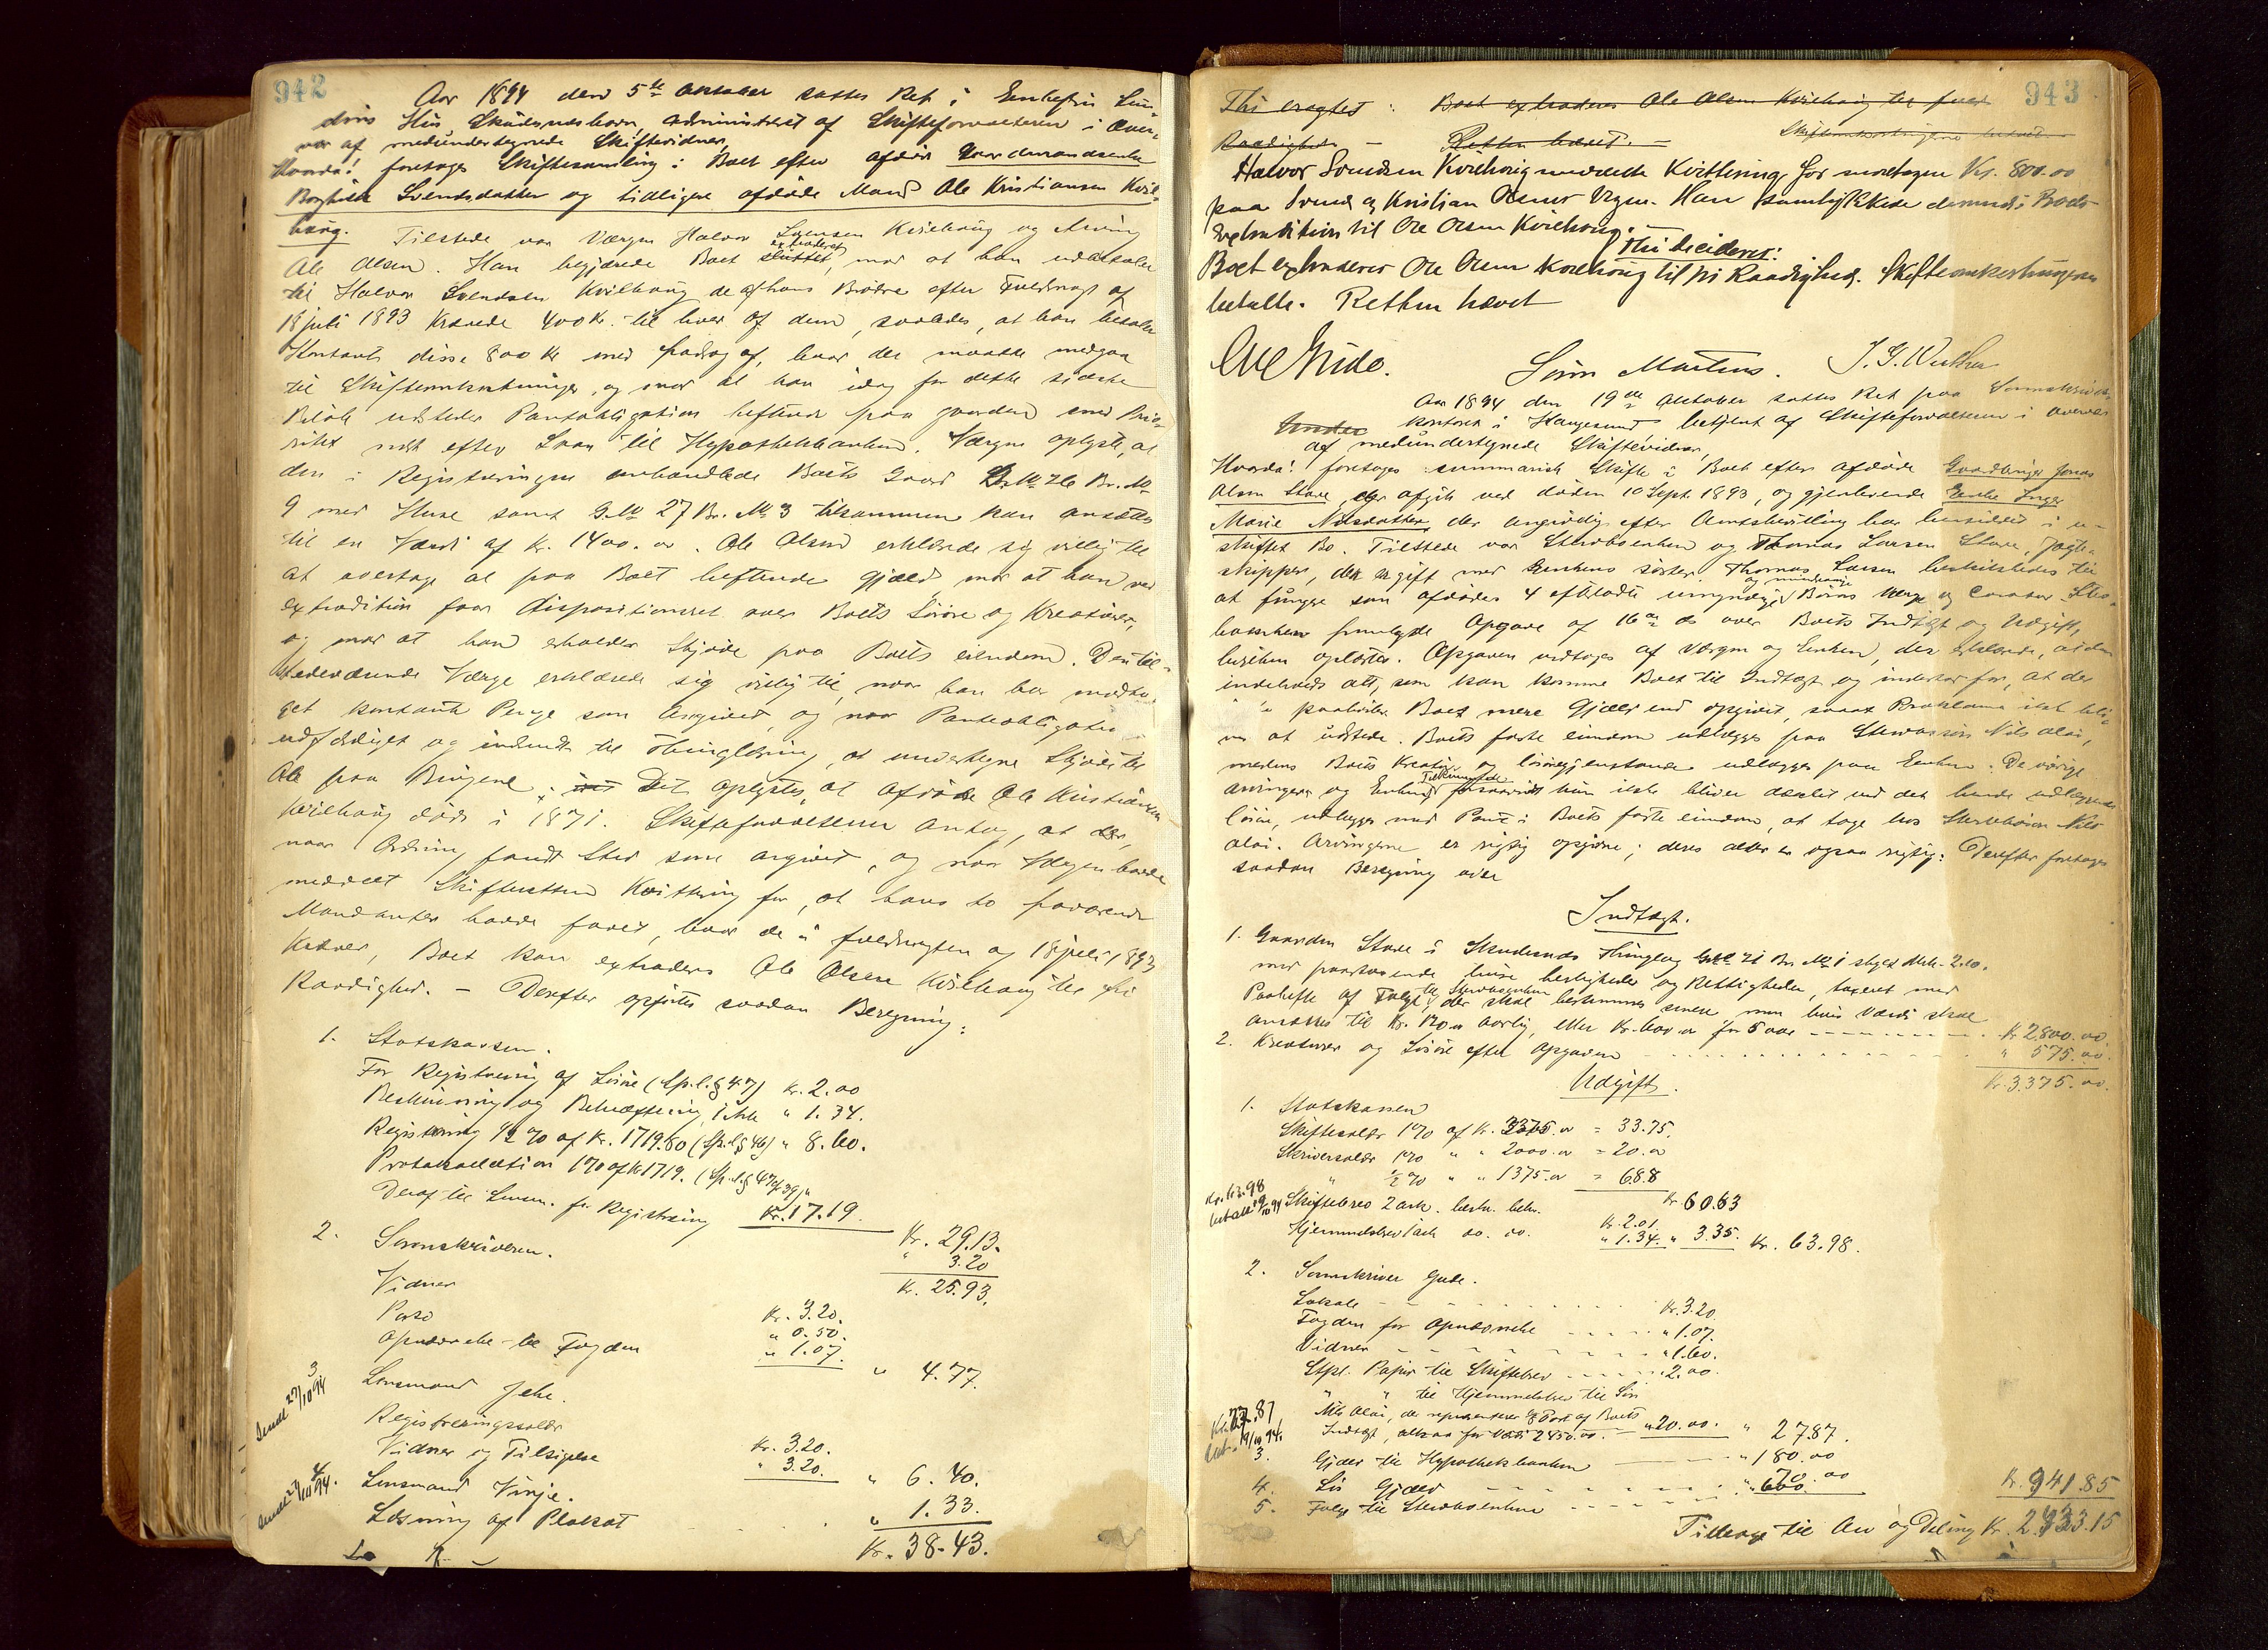 942
Aar 1894 den 5te Oktober sattes Ret i Enkefru Lun-
dins Hus Skudesneshavn, administreret af Skifteforvalteren i Over-
vær af medundertegnede Skiftevidner,
Hvorda! foretoges Skiftesamling i Boet efter afdøde Gaardmandsenke
Borghild Svendsdatter og tidligere afdøde Mand Ole Kristiansen Kvil-
houg. Tilstede var Værgen Halvor Svensen Kvilhoug og Arving
Ole Olsen. Han begjærede Boet sluttet extraderet, mod at han udbetaler
til Halvor Svendsen Kvilhoug de af hans Brødre efter Fuldmagt af
18 juli 1893 krævede 400 Kr. til hver af dem, saaledes, at han betaler
Kontant disse 800 Kr med fradrag af, hvad der maatte medgaa
til Skifteomkostninger, og mod at han idag for dette sidste
Beløb udsteder Panteobligation heftende paa gaarden med Prio-
ritet næst efter Laan til Hypothekbanken. Værgen oplyste, at
den i Registreringen omhandlede Boets Gaard G. No 26 Br. No
9 med Huse samt G. No 27 Br. No 3 tilsammen kan ansættes
til en Værdi af Kr. 1400.00. Ole Olsen erklærede sig villig til
at overtage al paa Boet heftende gjæld mod at han ved
extradition faar dispositionsret over Boets Løsøre og Kreaturer,
og mod at han erholder Skjøde paa Boets eiendom. Den til-
stedeværende Værge erklærede sig villig til, naar han har modta-
get kontante Penge som angivet, og naar Panteobligation er
udfærdiget og indsendt til thinglæsning, at undertegne Skjøde til
Ole paa Brugene. Det oplystes, at afdøde Ole Kristiansen
Kvilhoug døde i 1871. Skifteforvalteren antog, at der,
naar Ordning fandt Sted som angivet, og naar Værgen havde
meddelt Skifteretten Kvittering for, at hans to fraværende
Mandanter havde faaet, hvad de i fuldmagten af 18 juli 1893
kræver, Boet kan extraderes Ole Olsen Kvilhoug til fri
Raadighed. – Derefter opgjøres saadan Beregning:
1. Statskassen.
For Registrering af Løsøre (Sp.l. § 47) Kr. 2.00
Beskrivning og Bekræftning, 1 Ark " 1.34.
Registrering 1/2 % af Kr. 1719.60 (Sp.l. § 46) " 8.60.
Protokollation 1 % af Kr 1719. (Sp.l. § 47 og 39) "
Kr. 17.19
Kr. 29.13.
Deraf til Lensm. for Registrering " 3.20
Kr. 25.93.
2. Sorenskriveren.
Vidner Kr. 3.20.
Porto " 0.50.
Opnævnelse til Fogden " 1.07. " 4.77.
3
Sendt 27/10 94
Lensmand Jehe.
Registreringssalær Kr. 3.20.
Vidner og Tilsigelse " 3.20. " 6.40.
4.
Sendt 27/10 94.
Lensmand Vinje.
Læsning af Plakat " 1.33.
Kr. 38.43.
943
Thi eragtet: Boet extraderes Ole Olsen Kvilhoug til fuld
Raadighed – Retten hævet. – Skifteomkostningerne betalt
Halvor Svendsen Kvilhoug meddelte Kvittering for modtagen Kr. 800.00
paa Svend og Kristian Olsens Vegne. Han samtykkede dernæst i Boets
Extradition til Ole Olsen Kvilhoug. –
Thi decideret:
Boet extraderes Ole Olsen Kvilhoug til fri Raadighed. Skifteomkostningerne
betalte. Retten hævet
Ove Gude. Sören Martens. J. G. Wuther
Aar 1894 den 19de Oktober sattes Ret paa Sorenskriver-
kontoret i Haugesund betjent af Skifteforvalteren i Overvær
af medundertegnede Skiftevidner,
Hvorda! foretoges summarisk Skifte i Boet efter afdøde Gaardbruger Jonas
Olsen Stave, der afgik ved døden 10 Sept. 1893, og gjenlevende Enke Inger
Marie Nilsdatter, der angivelig efter Amtsbevilling har hensiddet i u-
skiftet Bo. Tilstede var Stervboenken og Thomas Larsen Stave, Jagt-
skipper, der er gift med Enkens søster. Thomas Larsen beskikkedes til
at fungere som afdødes 4 efterladte umyndige og mindreaarige Børns Værge og Curator. Sterv-
boenken fremlagde Opgave af 16de ds over Boets Indtægt og Udgift,
hvilken oplæstes. Opgaven vedtoges af Værgen og Enken, der erklærede, at den
indeholdt alt, som kan komme Boet til Indtægt og indestaar for, at der
ei paahviler Boet mere Gjæld end opgivet, saaat Proklama ikke bli-
ver at udstede. Boets faste eiendom udlægges paa Stervbosøn Nils Olai,
medens Boets Kreatur og løsøregjenstande udlægges paa Enken. De øvrige
arvinger og Enkens Tilkommende forsaavidt hun ikke bliver dækket ved det hende udlagte
løsøre, udlægges med Pant i Boets faste eiendom, at tage hos Stervbosøn Nils
Olai. Arvingerne er rigtig opgivne; deres alder er ogsaa rigtig. Derefter foretoges
saadan Beregning over
Indtægt.
1. Gaarden Stave i Skudesnæs Thinglag G. No 21 Br. No 1 skyld Mrk. 2.10.
med paastaaende huse herligheder og Rettigheder, taxeret med
Paahefte af Folge til Stervboenken, der skal bestemmes senere, men hvis Værdi skal
ansættes til Kr. 120.00 aarlig, eller Kr. 600.00 for 5 aar Kr 2,800.00
2. Kreaturer og Løsøre efter Opgaven " 575.00.
Kr. 3375.00.
Udgift.
1. Statskassen
Skiftesalær 1 % af Kr. 3375.00 = 33.75.
Skriversalær 1 % " " 2000.00 = 20.00
" 1/2 % " " 1375.00 = 6.88
Kr. 60.63
Kr. 63.98
betalt 19/10 94
Skiftebrev 2 ark. beskr. bekr. Kr. 2.01.
Hjemmelsbrev 1 ark do. do. " 1.34. " 3.35. Kr. 63.98.
2. Sorenskriver Gude.
Lokale Kr. 3.20
Fogden for Opnævnelse " 1.07.
Vidner " 1.60.
Stpl. Papir til Skiftebrev " 2.00.
" " til Hjemmelsbrev til Søn
Nils Olai, der repræsenterer Part af Boets
Indtægt, altsaa for Værdi 2450.00. " 20.00. " 27.87.
Kr. 27.87
bet. 19/10 94.
3. Gjæld til Hypothekbanken " 180.00
4. Løs Gjæld " 70.00
5. Folge til Stervboenken " 600. Kr. 941.85
Tilbage til Arv og Deling Kr. 2,433.15